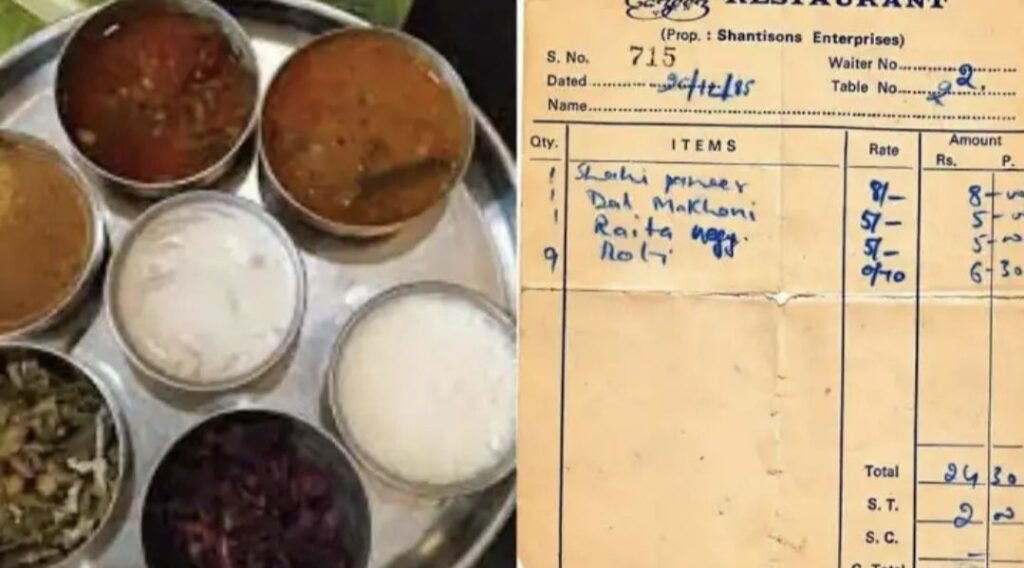 RESTAURANT
(Prop. : Shantisons Enterprises)
S. No. 715 Waiter No. 2.
Dated 20/12/85 Table No.
Name
Qty. ITEMS Rate Amount
Rs. P.
1 Shahi paneer 8/- 8-00
1 Dal Makhani 5/- 5-00
1 Raita 5/- 5-00
9 Roti 0/70 6-30
Total 24 30
S. T. 2 00
S. C. -
G. Total